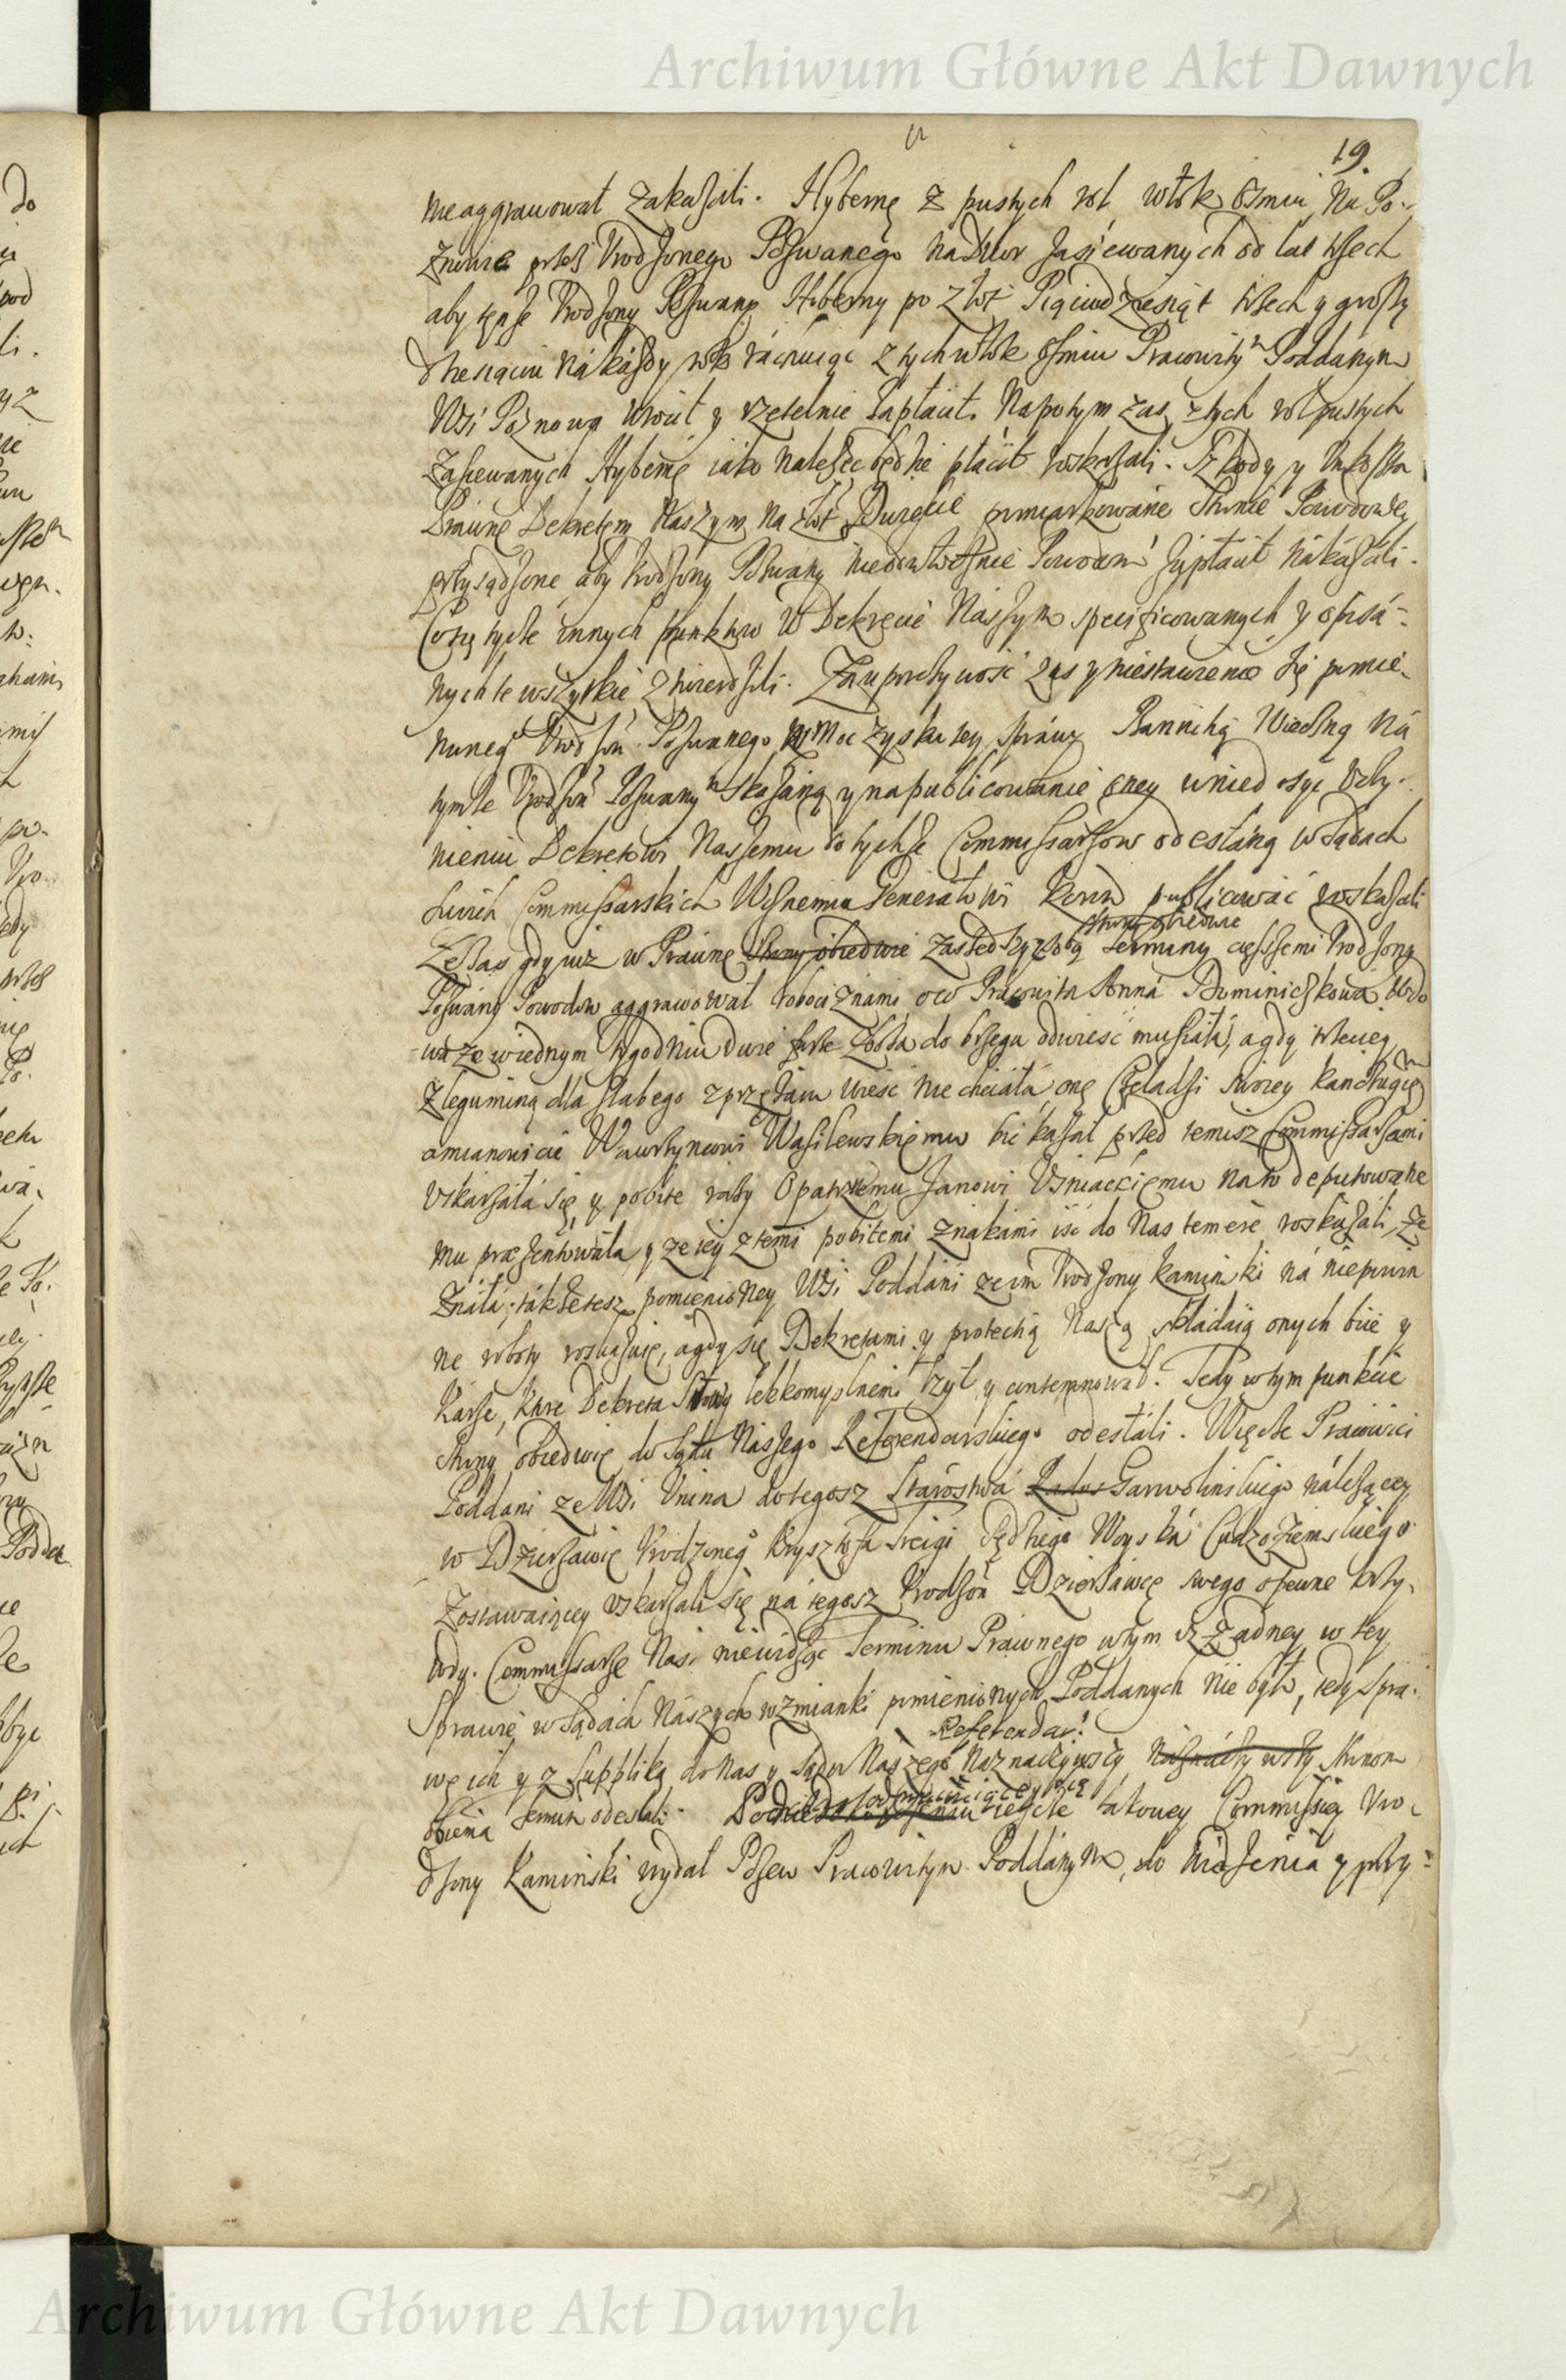 Archiwum Główne Akt Dawnych
19.
nieaggrawował zakazali. Hybernę z pustych ról włok ośmiu Na Po-
znowie przez Urodzonego Pozwanego na Dwor zasiewanych od lat trzech
aby tenże Urodzony Pozwany Hiberny po złot Pięciudziesiąt trzech y groszy
dziesiąciu ná káżdy rok ráchuiąc z tych włok ośmiu Pracowitym Poddanym
Wsi Poznowa wrócił y rzetelnie zapłácił. Napotym zas z tych ról pustych
Zasiewanych Hybernę iako należeć będzie płácił roskazali. Szkody y
Prawne Dekretem Naszym na złot Dwieście pomiarkowane Stronie Powodowey
przysądzone, aby Urodzony Pozwany nieodwłocznie Powodom zapłácił nákazáli.
Co się tycze innych punktow w Dekrecie Naszym specificowanych y opisá-
nych te wszytkie ztwierdzili. Za uprotywość zas y niestawienie się pomie-
nioneg Urodzon Pozwanego w moc zysku tey spráwy Bannicią Wieczną ná
tymże Urodzon Pozwanym skazáną y na publicowanie oney w niedosyć uczy-
nieniu Dekretowi Naszemu do tychże Commissarzow odesłáną w Sądach
swoich Commissarskich Woznemu Generałowi Koron publicować roskazali
strony obiedwie
Ze zas gdy iuż w Prawne strony obiedwie zaszedszy z sobą terminy cięższemi Urodzony
Pozwány Powodow aggrawował robociznami, oco Pracowita Anná Dominiczkowa Wdo-
wa że w iednym tygodniu dwie furze zboża do brzegu odwieść musiáłá, a gdy trzeciey
z leguminą dla słabego zprzężaiu wieść nie chciáłá, onę Czeladzi swoiey kańczugiem
amianowicie Wawrzyncowi Wasilewskiemu bić kazał przed temisz Commissarzami
Uskarżáłá się, y pobite razy Opatrznemu Janowi Uśniackiemu na to deputowane
mu præsentowáła, y że iey z temi pobitemi znákami iść do Nas temere roskazáli, ze
Ználá; tákże tesz pomienioney Wsi Poddáni ze im Urodzony Kaminski ná niepowin
ne roboty roskazuie, á gdy się Dekretami y protectią Naszą składáią onych biie y
Karze, ktore Dekreta Słowy lekkomyslnemi lżył y contemnował. Tedy w tym punkcie
strony obiedwie do Sądu Naszego Referendarskiego odesłáli. Więcże Pracowici
Poddani ze Wsi Unina do tegosz Stárostwá Garwolinskiego náleżącey
w Dzierżawie Urodzoneg Krysztofa Sędziego Woyská Cudzoziemskiego
Zostawaiącey uskarżali się ná tegosz Urodzon Dzierżáwcę swego o pewne krzy-
wdy. Commissarze Nasi niewidząc Terminu Prawnego w tym y żadney w tey
Sprawie w Sądach Nászych wzmianki pomienionych Poddanych nie było, tedy sprá-
Referendar:
wę ich y z Suppliką do Nas y Sądu Naszego Naznaczywszy Náznáczywszy stronom
obiema termin odesłáli. ieszcze takowey Commissiey Uro-
dzony Kaminski wydał Pozew Pracowitym Poddánym, do widzenia y przy-
Archiwum Główne Akt Dawnych